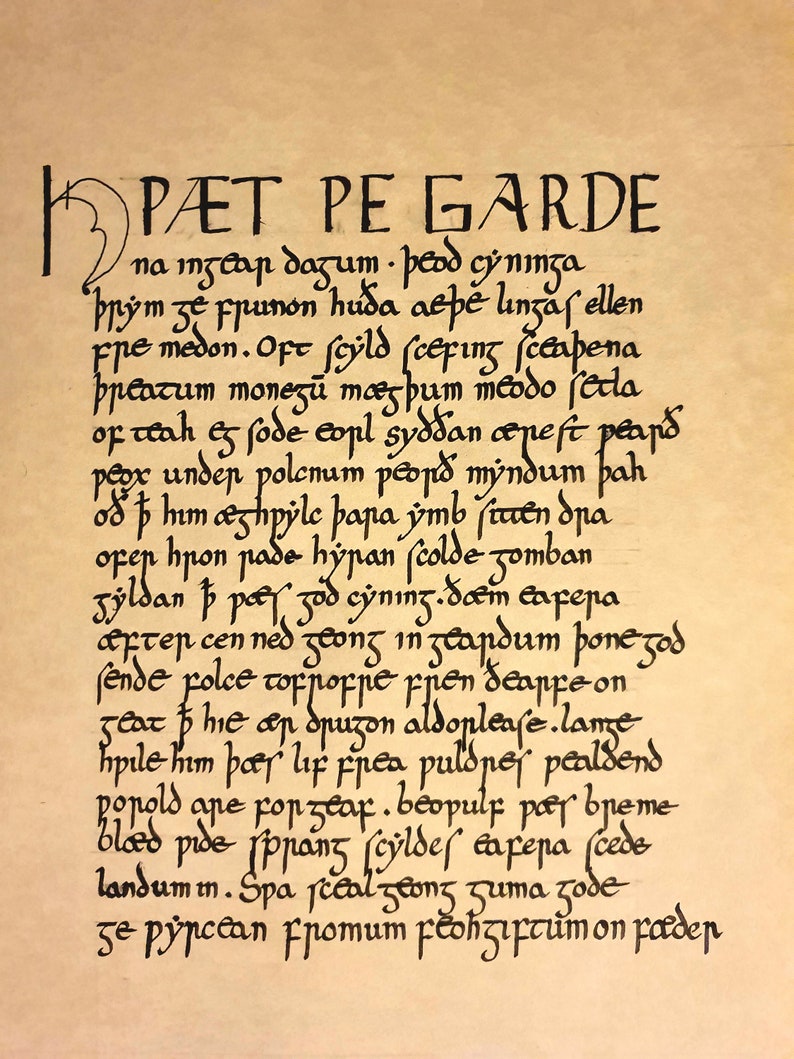 HǷÆT ǷE GARDE
na ingear dagum · þeod cẏninga
þrẏm ge frunon huða aeþe lingas ellen
fre medon. Oft scẏld scefing sceaþena
þreatum monegū mægþum meodo setla
of teah eg sode eorl syððan ærest ƿearð
ƿeox under ƿolcnum ƿeorð mẏndum þah
oð ꝥ him æghƿẏlc þara ẏmb sitten dra
ofer hron rade hẏran scolde gomban
gẏldan ꝥ ƿæs god cẏning. ðæm eafera
æfter cen ned geong in geardum þone god
sende folce tofrofre fren ðearfe on
geat ꝥ hie ær drugon aldorlease. lange
hƿile him þæs lif frea ƿuldres ƿealdend
ƿorold are for geaf. beoƿulf ƿæs breme
blæd ƿide sprang scẏldes eafera scede
landum in. Sƿa scealgeong guma gode
ge ƿẏrcean fromum feohgiftum on fæder